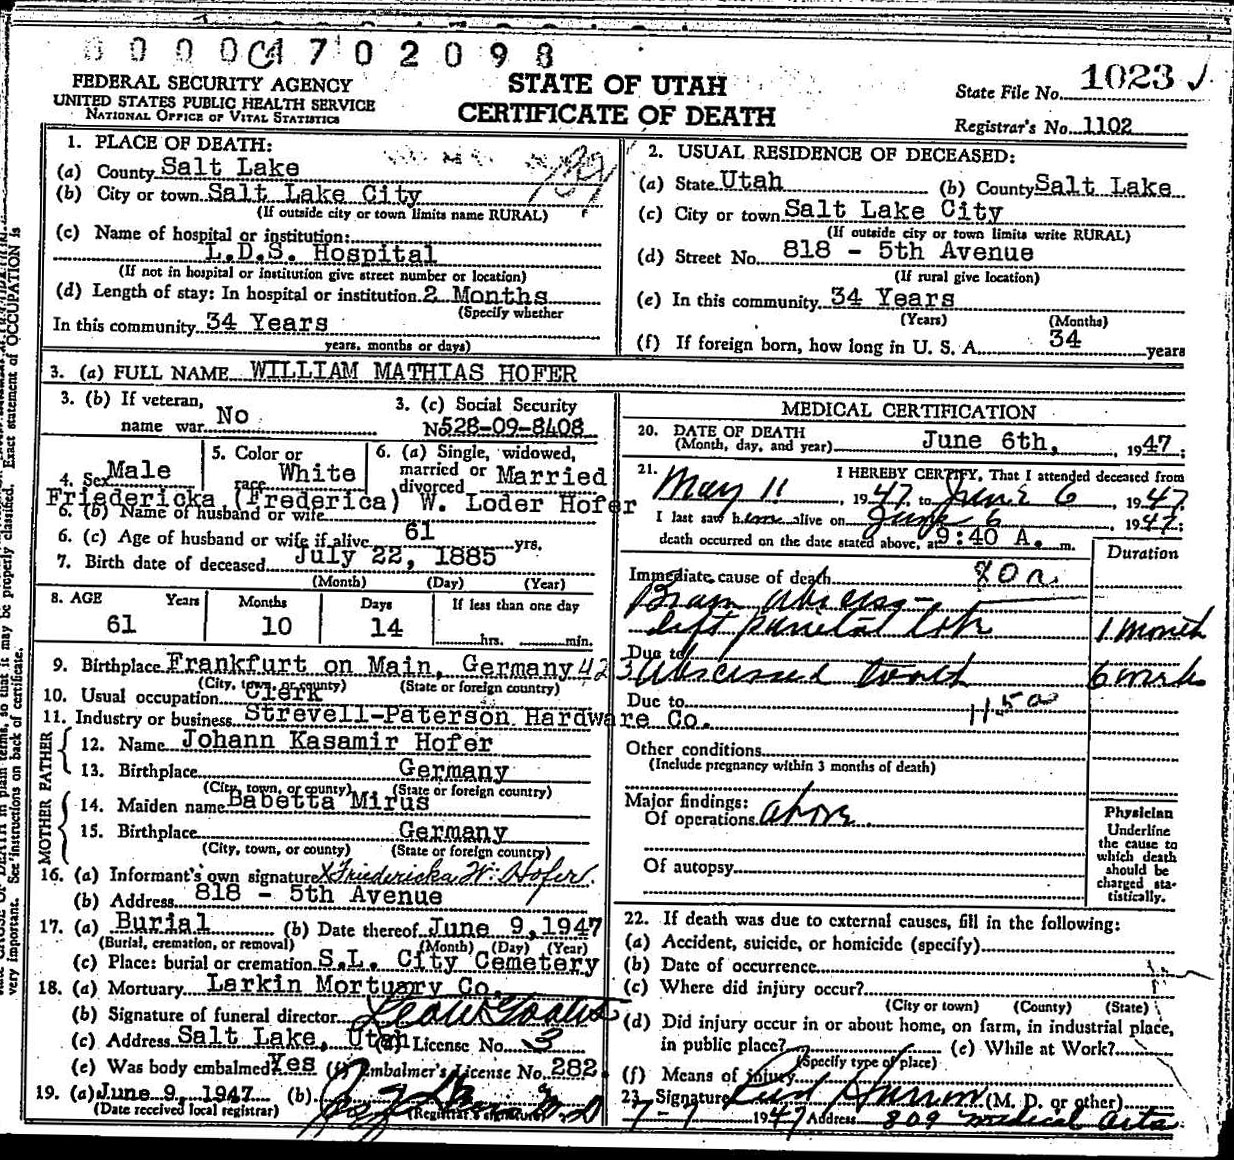 0 0 0 0 0 1 7 0 2 0 9 8
FEDERAL SECURITY AGENCY
UNITED STATES PUBLIC HEALTH SERVICE
NATIONAL OFFICE OF VITAL STATISTICS
STATE OF UTAH
CERTIFICATE OF DEATH
State File No. 1023
Registrar's No. 1102
1. PLACE OF DEATH:
(a) County Salt Lake
(b) City or town Salt Lake City
(If outside city or town limits name RURAL)
(c) Name of hospital or institution:
L.D.S. Hospital
(If not in hospital or institution give street number or location)
(d) Length of stay: In hospital or institution 2 Months
(Specify whether
In this community 34 Years
years, months or days)
2. USUAL RESIDENCE OF DECEASED:
(a) State Utah (b) County Salt Lake
(c) City or town Salt Lake City
(If outside city or town limits write RURAL)
(d) Street No. 818 - 5th Avenue
(If rural give location)
(e) In this community 34 Years
(Years) (Months)
(f) If foreign born, how long in U. S. A. 34 years
3. (a) FULL NAME WILLIAM MATHIAS HOFER
3. (b) If veteran,
name war No
3. (c) Social Security
No 528-09-8408
4. Sex Male
5. Color or
race White
6. (a) Single, widowed,
married or
divorced Married
Friedericka (Frederica) W. Loder Hofer
6. (b) Name of husband or wife
6. (c) Age of husband or wife if alive 61 yrs.
7. Birth date of deceased July 22, 1885
(Month) (Day) (Year)
8. AGE Years Months Days If less than one day
61 10 14 hrs. min.
9. Birthplace Frankfurt on Main, Germany 423
(City, town, or county) (State or foreign country)
10. Usual occupation Clerk
11. Industry or business Strevell-Paterson Hardware Co.
FATHER
12. Name Johann Kasamir Hofer
13. Birthplace Germany
(City, town, or county) (State or foreign country)
MOTHER
14. Maiden name Babetta Mirus
15. Birthplace Germany
(City, town, or county) (State or foreign country)
16. (a) Informant's own signature X Friedericka W. Hofer
(b) Address 818 - 5th Avenue
17. (a) Burial (b) Date thereof June 9, 1947
(Burial, cremation, or removal) (Month) (Day) (Year)
(c) Place: burial or cremation S.L. City Cemetery
18. (a) Mortuary Larkin Mortuary Co.
(b) Signature of funeral director
(c) Address Salt Lake, Utah (d) License No. 3
(e) Was body embalmed Yes (f) Embalmer's License No. 282
19. (a) June 9, 1947 (b)
(Date received local registrar) (Registrar's signature)
MEDICAL CERTIFICATION
20. DATE OF DEATH
(Month, day, and year) June 6th, 1947;
21. I HEREBY CERTIFY, That I attended deceased from
May 11 1947 to June 6 1947
I last saw him alive on June 6, 1947;
death occurred on the date stated above, at 9:40 A. m.
Duration
Immediate cause of death
Brain abscess -
left parietal lobe 1 month
Due to
Abscessed tooth 6 wks
Due to 115a
Other conditions
(Include pregnancy within 3 months of death)
Major findings:
Of operations above
Of autopsy
Physician
Underline
the cause to
which death
should be
charged sta-
tistically.
22. If death was due to external causes, fill in the following:
(a) Accident, suicide, or homicide (specify)
(b) Date of occurrence
(c) Where did injury occur?
(City or town) (County) (State)
(d) Did injury occur in or about home, on farm, in industrial place,
in public place? (e) While at Work?
(Specify type of place)
(f) Means of injury
23 Signature (M. D. or other)
7-7 1947 Address 809 Medical Arts